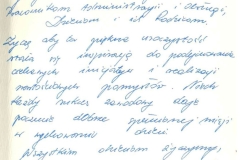 Pracownikom administracji i obsługi,
Dzieciom i ich Rodzicom.
Życzę aby ta piękna uroczystość
stała się inspiracją do podejmowania
cennych inicjatyw i realizacji
zamierzonych pomysłów. Niech
każdy sukces zawodowy daje
poczucie dobrze spełnionej misji
w wychowaniu dzieci.
wszystkim obecnym życzymy,